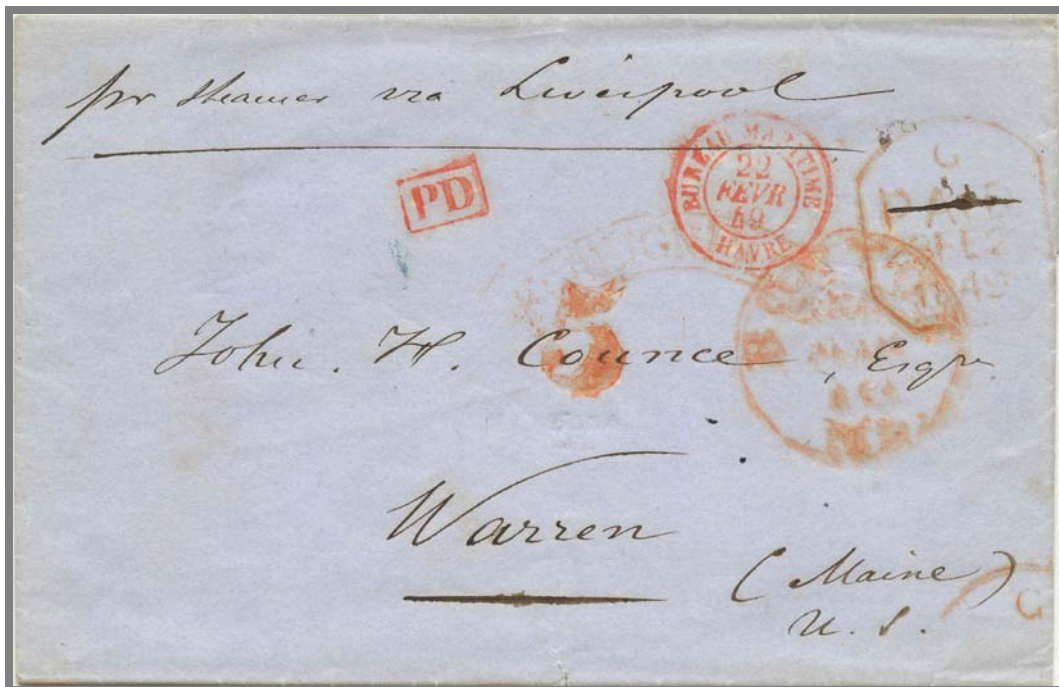 pr steamer via Liverpool
BUREAU MARITIME
22
FEVR
49
HAVRE
PD
PAID
1849
5
John. H. Counce, Esqre
Warren
(Maine)
U. S.